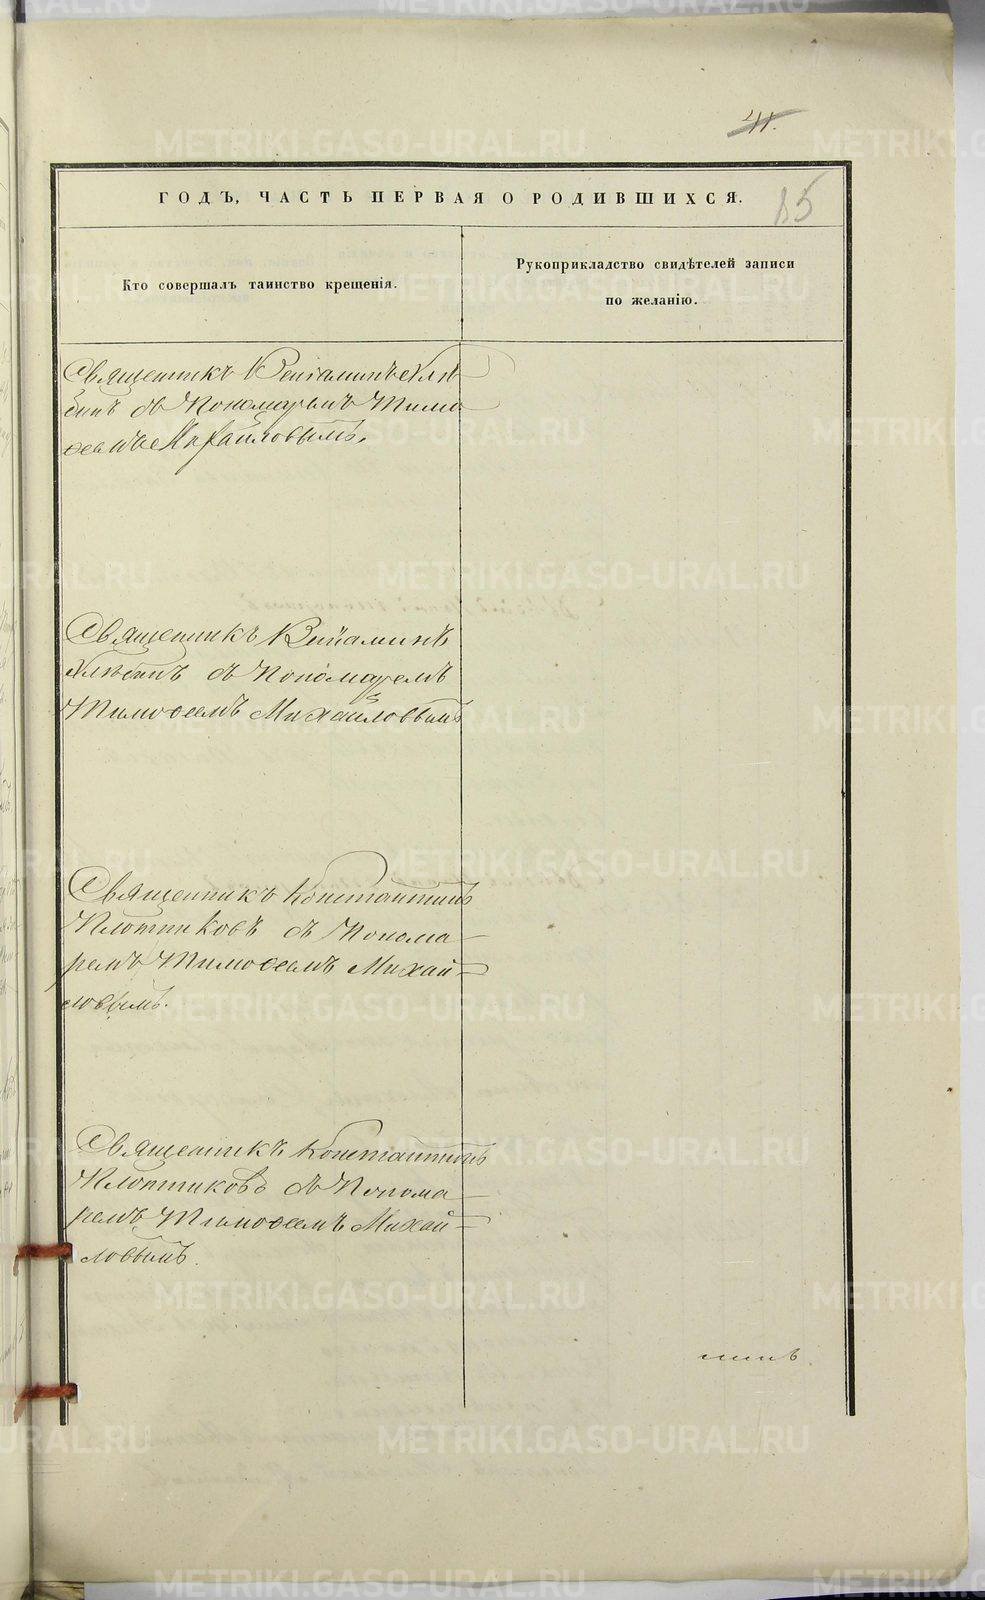 41.
85
ГОДЪ, ЧАСТЬ ПЕРВАЯ О РОДИВШИХСЯ.
Кто совершалъ таинство крещенія.
Рукоприкладство свидѣтелей записи
по желанію.
Священникъ Веніаминъ Хлѣ
бинъ съ Пономаремъ Тимо
ѳеемъ Михайловымъ.
Священникъ Веніаминъ
Хлѣбинъ съ Пономаремъ
Тимоѳеемъ Михайловымъ
Священникъ Константинъ
Плотниковъ съ Понома-
ремъ Тимоѳеемъ Михай-
ловымъ.
Священникъ Константинъ
Плотниковъ съ Понома-
ремъ Тимоѳеемъ Михай-
ловымъ.
METRIKI.GASO-URAL.RU